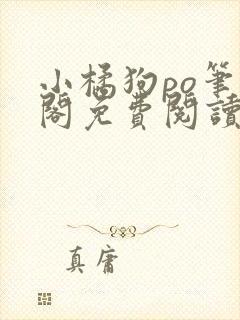 小橘狗po筆
閣免費閱讀
真庸